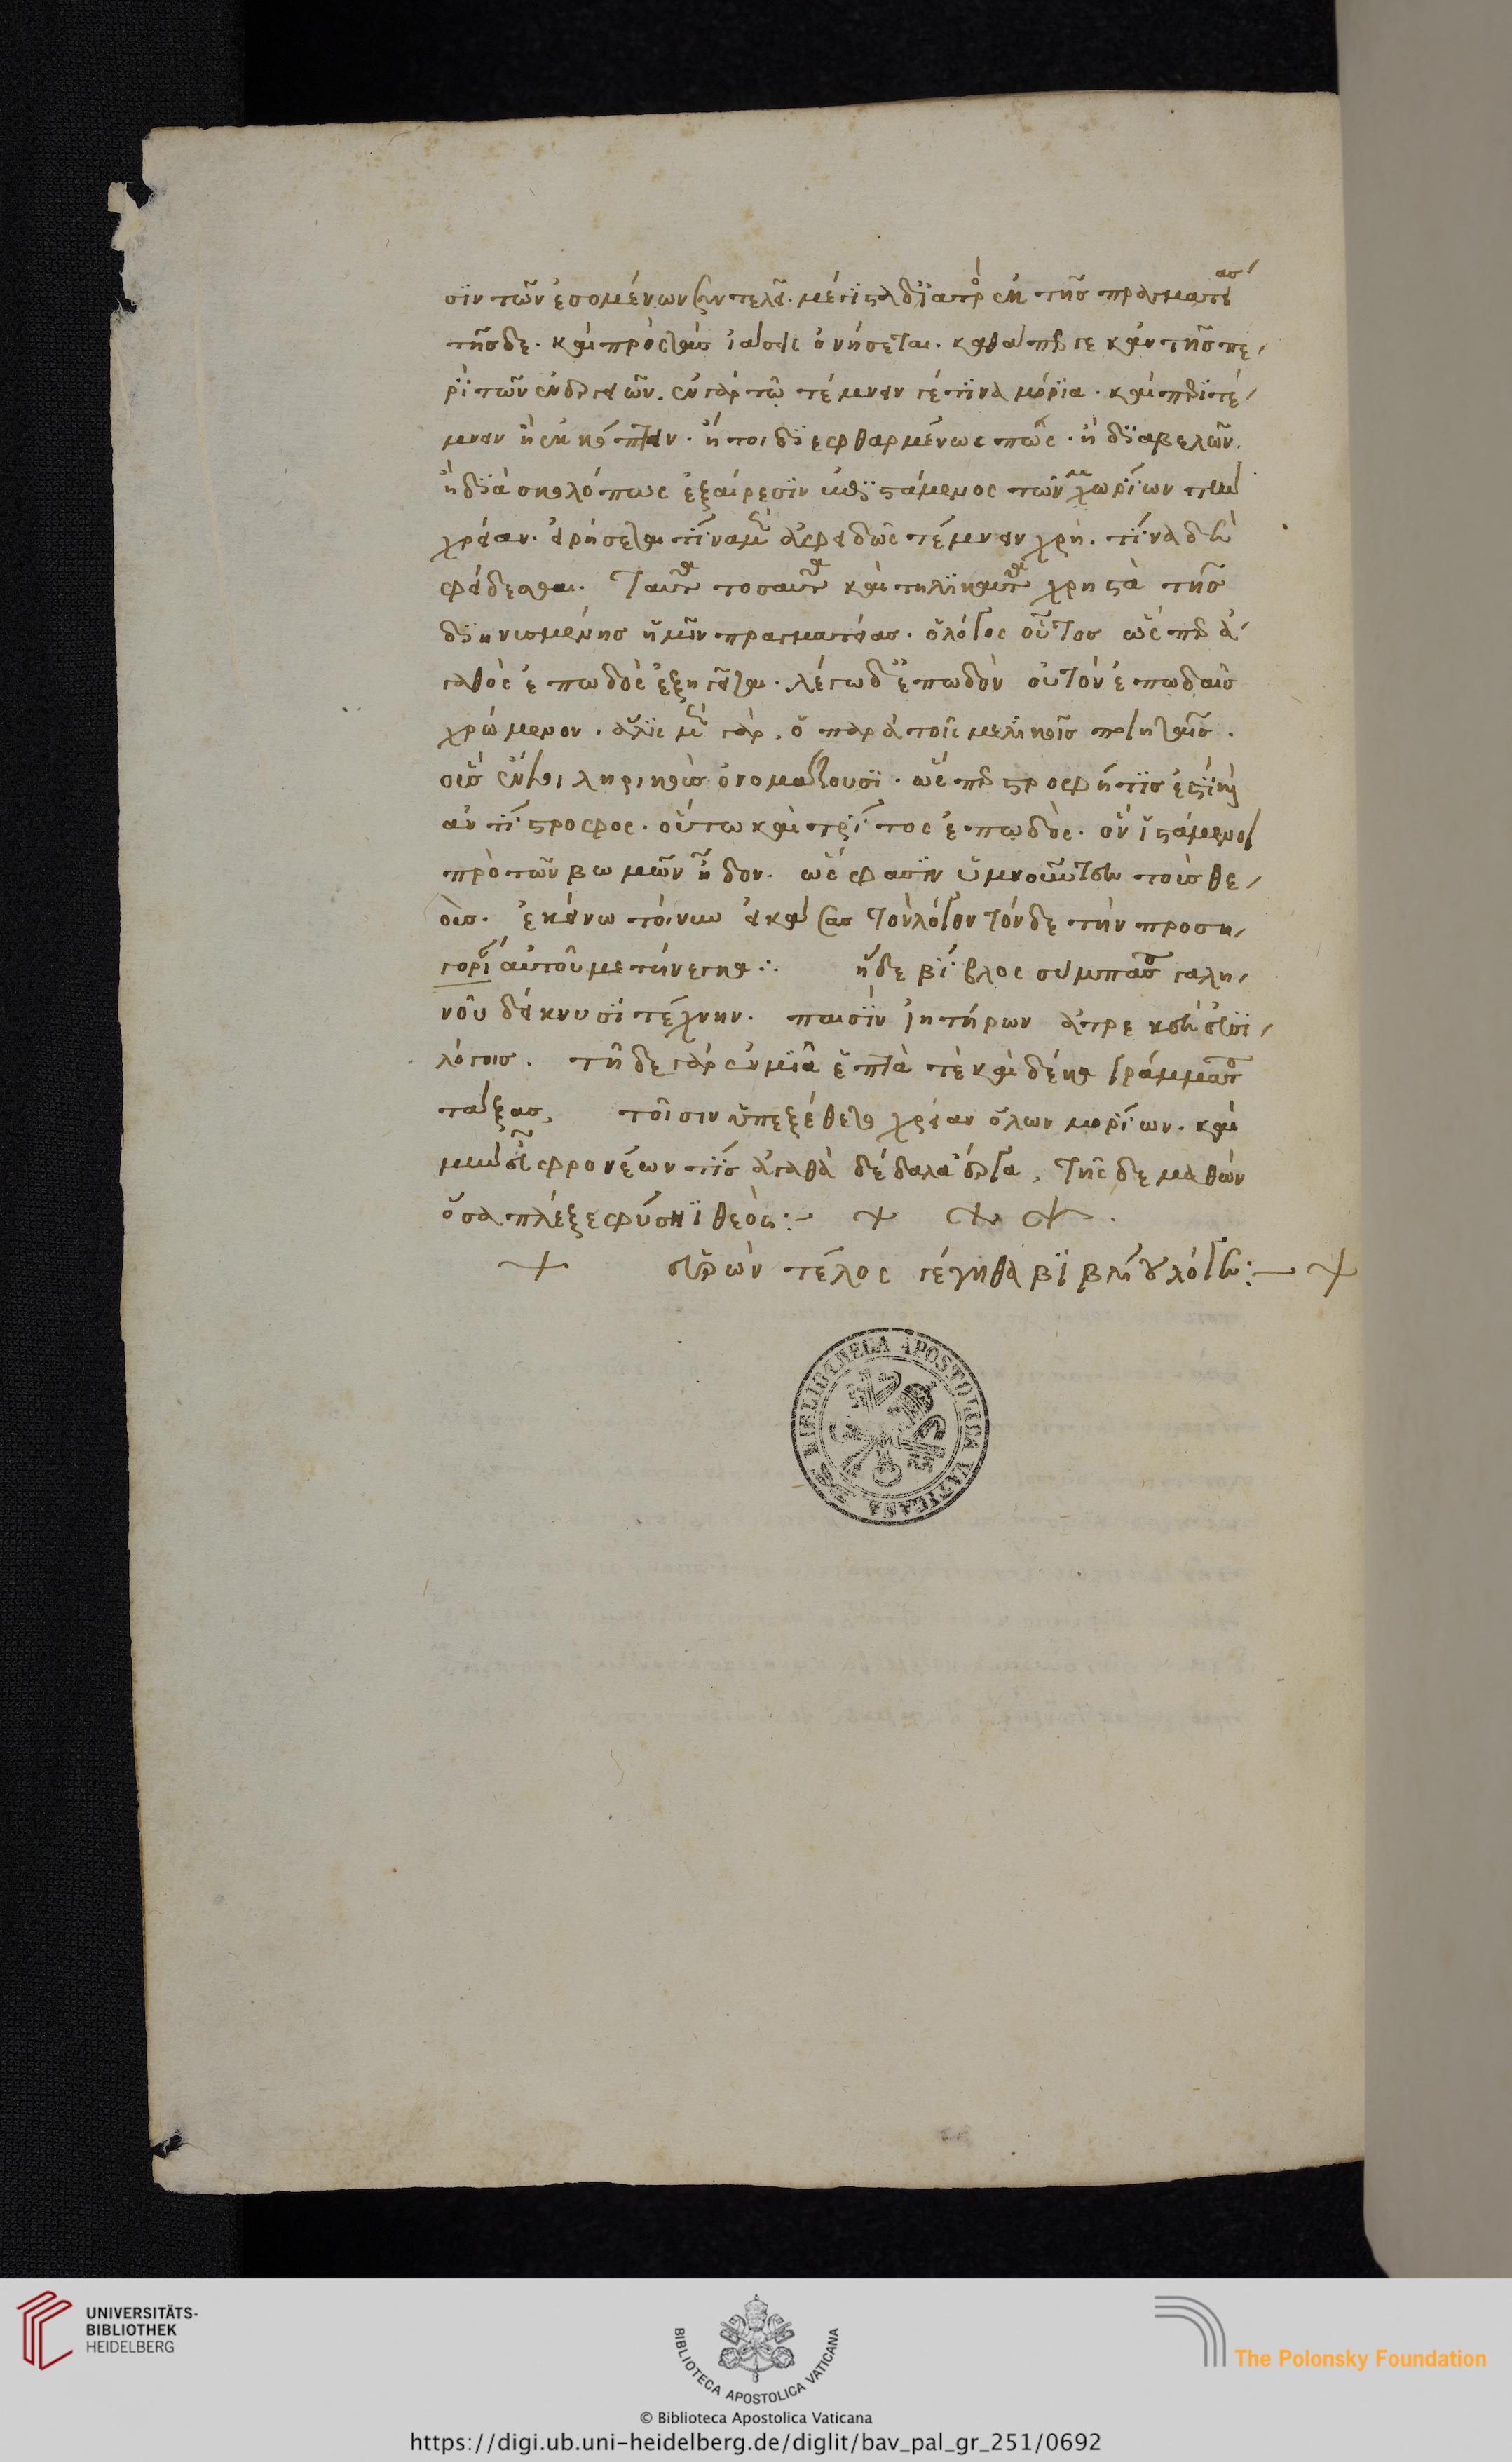 σιν τῶν ἐσομένων συντελεῖ. μέγιστα δ' ἰατρὸς ἐκ τῆς πραγματείας
τῆσδε. καὶ πρὸς τὰς ἰάσεις ὀνήσεται. καθάπερ γε κἀν τῆς πε-
ρὶ τῶν ἐνεργειῶν. ἐν γὰρ τῷ τέμνειν γέ τινα μόρια. καὶ περιτέ-
μνειν ἢ ἐκκόπτειν. ἤτοι διεφθαρμένως πως. ἢ διὰ βελῶν
ἢ διὰ σκόλοπος ἐξαίρεσιν ἐπιστάμενος τῶν μορίων τὴν
χρείαν. εἰρήσεται τίνα μὲν ἀφειδῶς τέμνειν χρή. τίνων δὲ
φείδεσθαι. Ταῦτα τοσαῦτα καὶ τηλικαῦτα χρηστὰ τῆς
διηνυσμένης ἡμῖν πραγματείας. ὁ λόγος οὗτος ὥσπερ ἀ-
γαθὸς ἐπωδὸς ἐξηγεῖται. λέγω δ' ἐπωδὸν οὐ τὸν ἐπωδαῖς
χρώμενον. ἀλλ' ἴσμεν γὰρ. ὁ παρὰ τοῖς μελικοῖς ποιηταῖς.
οὓς ἔνιοι λυρικοὺς ὀνομάζουσι. ὥσπερ στροφή τις ἐστὶ καὶ
ἀντίστροφος. οὕτω καὶ τρίτος ἐπῳδός. ὃν ἱστάμενοι
πρὸ τῶν βωμῶν ᾖδον. ὥς φασιν ὑμνοῦντες τοὺς θε-
ούς. ἐκείνῳ τοίνυν εἰκάσας τὸν λόγον τόνδε τὴν προση-
γορίαν αὐτοῦ μετήνεγκα ∴ ἥδε βίβλος σύμπασα γαλη-
νοῦ δείκνυσι τέχνην. πᾶσιν ἰητήρων ἀτρεκέεσσι
λόγοις. τῇδε γὰρ ἐν μιᾷ ἑπτά τε καὶ δέκα γράμματα
τάξας, τοῖσιν ὑπεξέθετο χρείαν ὅλων μορίων. καὶ
φρονέων τις ἀγαθὰ δέδαλα ἔργα, τῆσδε μαθὼν
ὅσα πλέξε φύσηι θεός :-
εὑρὼν τέλος γέγηθα βιβλίου λόγων :-
BIBLIOTHECA APOSTOLICA VATICANA
UNIVERSITÄTS-
BIBLIOTHEK
HEIDELBERG
BIBLIOTECA APOSTOLICA VATICANA
The Polonsky Foundation
© Biblioteca Apostolica Vaticana
https://digi.ub.uni-heidelberg.de/diglit/bav_pal_gr_251/0692